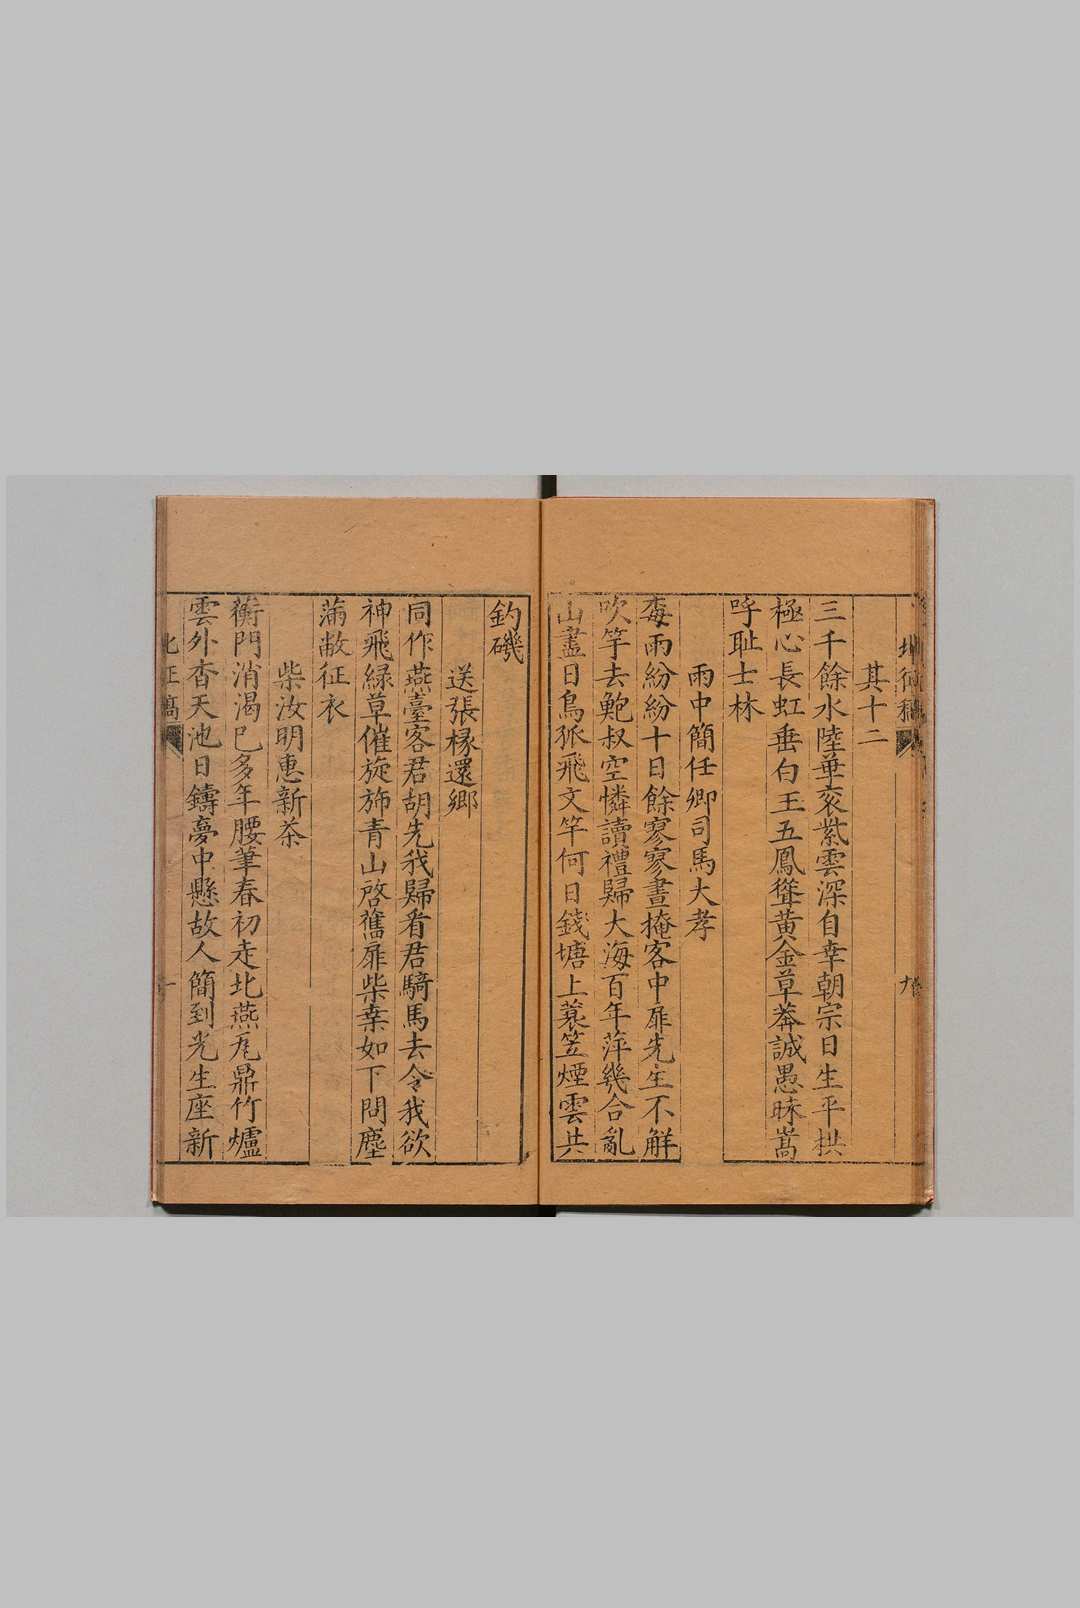 北征稿
九
其十二
三千餘水陸華衮紫雲深自幸朝宗日生平拱
極心長虹垂白玉五鳳聳黃金草莽誠愚昧嵩
呼耻士林
雨中簡任卿司馬大孝
毒雨紛紛十日餘寥寥晝掩客中扉先生不解
吹竽去鮑叔空憐讀禮歸大海百年萍幾合亂
山盡日鳥狐飛文竿何日錢塘上蓑笠煙雲共
釣磯
送張椽還鄉
同作燕臺客君胡先我歸看君騎馬去令我欲
神飛緑草催旋斾青山啓舊扉柴桒如下問塵
滿敝征衣
柴汝明惠新茶
蘅門消渴已多年腰筆春初走北燕瓦鼎竹爐
雲外杳天池日鑄夢中懸故人簡到光生座新
北征稿